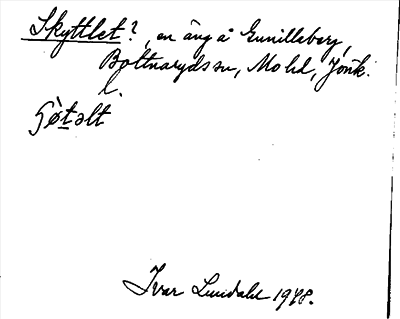 Skyttlet?, en äng å Gunillaberg,
Bottnaryds sn, Mo hd, Jönk.
l.
Ivar Lundahl 1948.